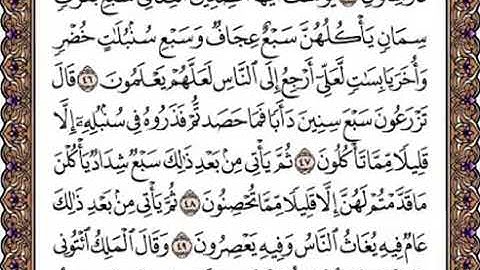 سِمَانٍ يَأْكُلُهُنَّ سَبْعٌ عِجَافٌ وَسَبْعِ سُنۢبُلَٰتٍ خُضْرٍ
وَأُخَرَ يَابِسَٰتٍ لَّعَلِّيٓ أَرْجِعُ إِلَى ٱلنَّاسِ لَعَلَّهُمْ يَعْلَمُونَ ٤٦ قَالَ
تَزْرَعُونَ سَبْعَ سِنِينَ دَأَبًا فَمَا حَصَدتُّمْ فَذَرُوهُ فِي سُنۢبُلِهِۦٓ إِلَّا
قَلِيلًا مِّمَّا تَأْكُلُونَ ٤٧ ثُمَّ يَأْتِي مِنۢ بَعْدِ ذَٰلِكَ سَبْعٌ شِدَادٌ يَأْكُلْنَ
مَا قَدَّمْتُمْ لَهُنَّ إِلَّا قَلِيلًا مِّمَّا تُحْصِنُونَ ٤٨ ثُمَّ يَأْتِي مِنۢ بَعْدِ ذَٰلِكَ
عَامٌ فِيهِ يُغَاثُ ٱلنَّاسُ وَفِيهِ يَعْصِرُونَ ٤٩ وَقَالَ ٱلْمَلِكُ ٱئْتُونِي